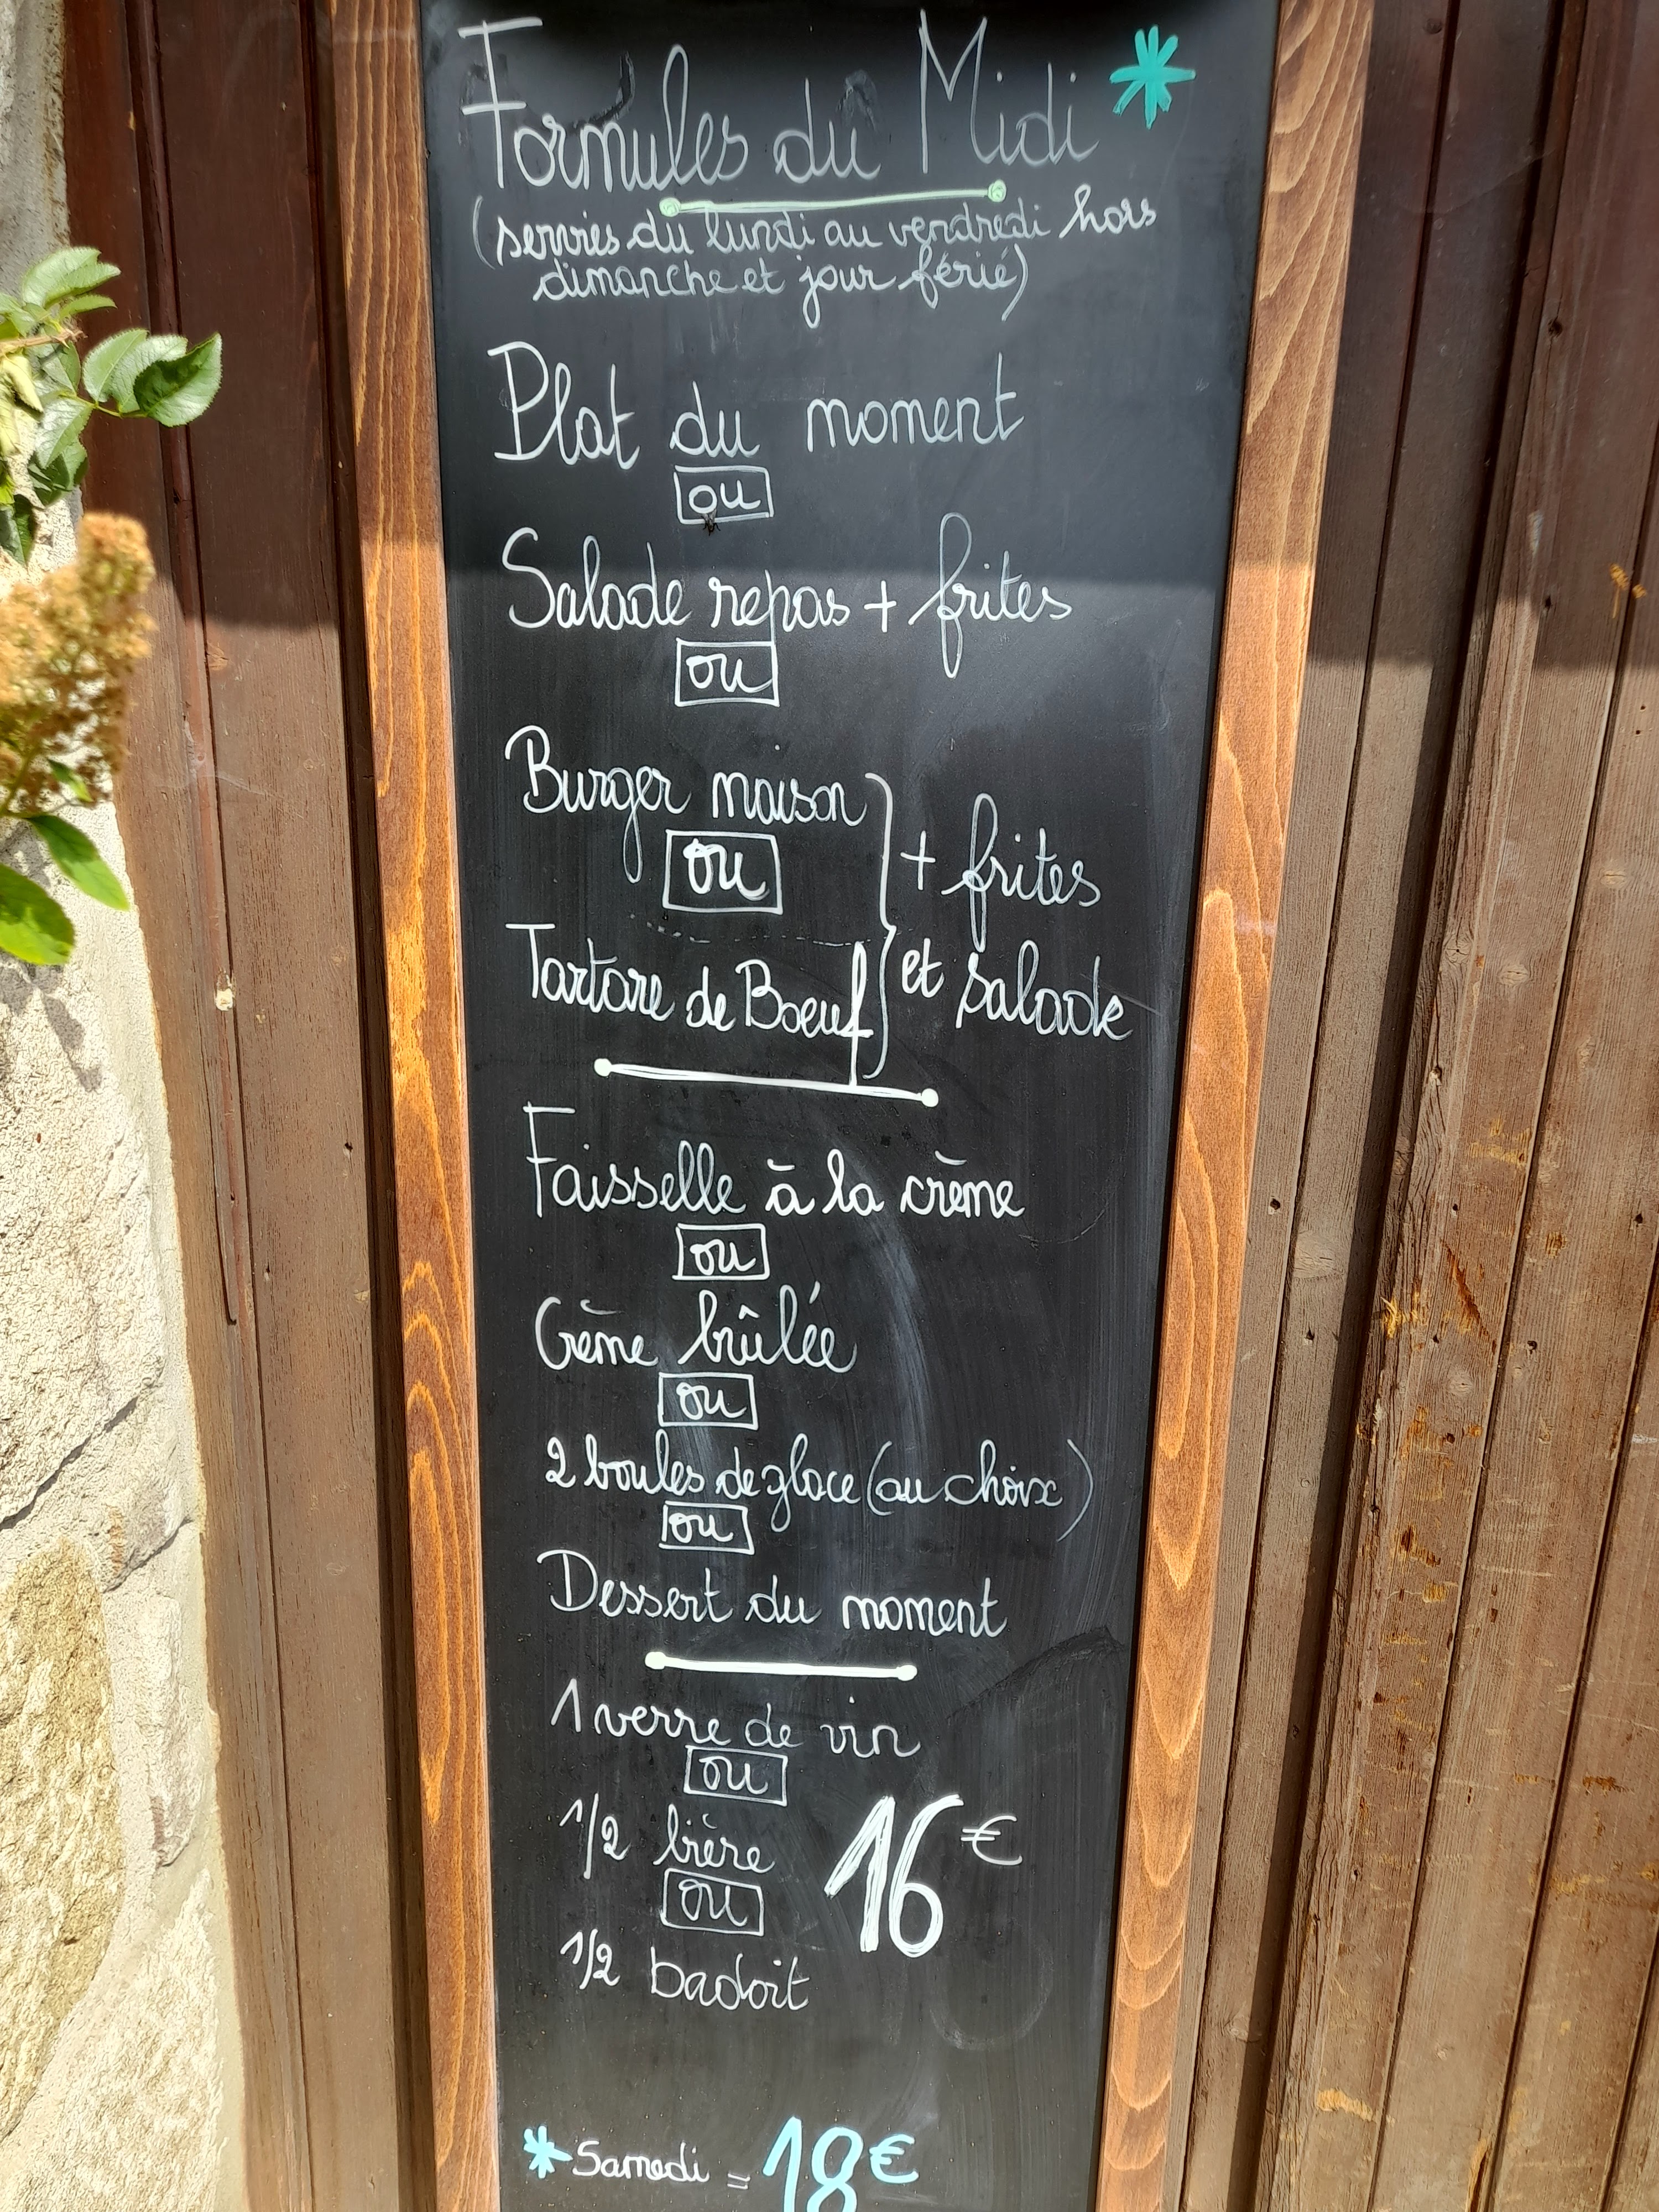 Formules du Midi *
(servies du lundi au vendredi hors
dimanche et jour férié)
Plat du moment
ou
Salade repas + frites
ou
Burger maison
ou
Tartare de Boeuf
+ frites
et salade
Faisselle à la crème
ou
Crème brûlée
ou
2 boules de glace (au choix)
ou
Dessert du moment
1 verre de vin
ou
1/2 bière
ou
1/2 badoit
16 €
* Samedi = 18 €